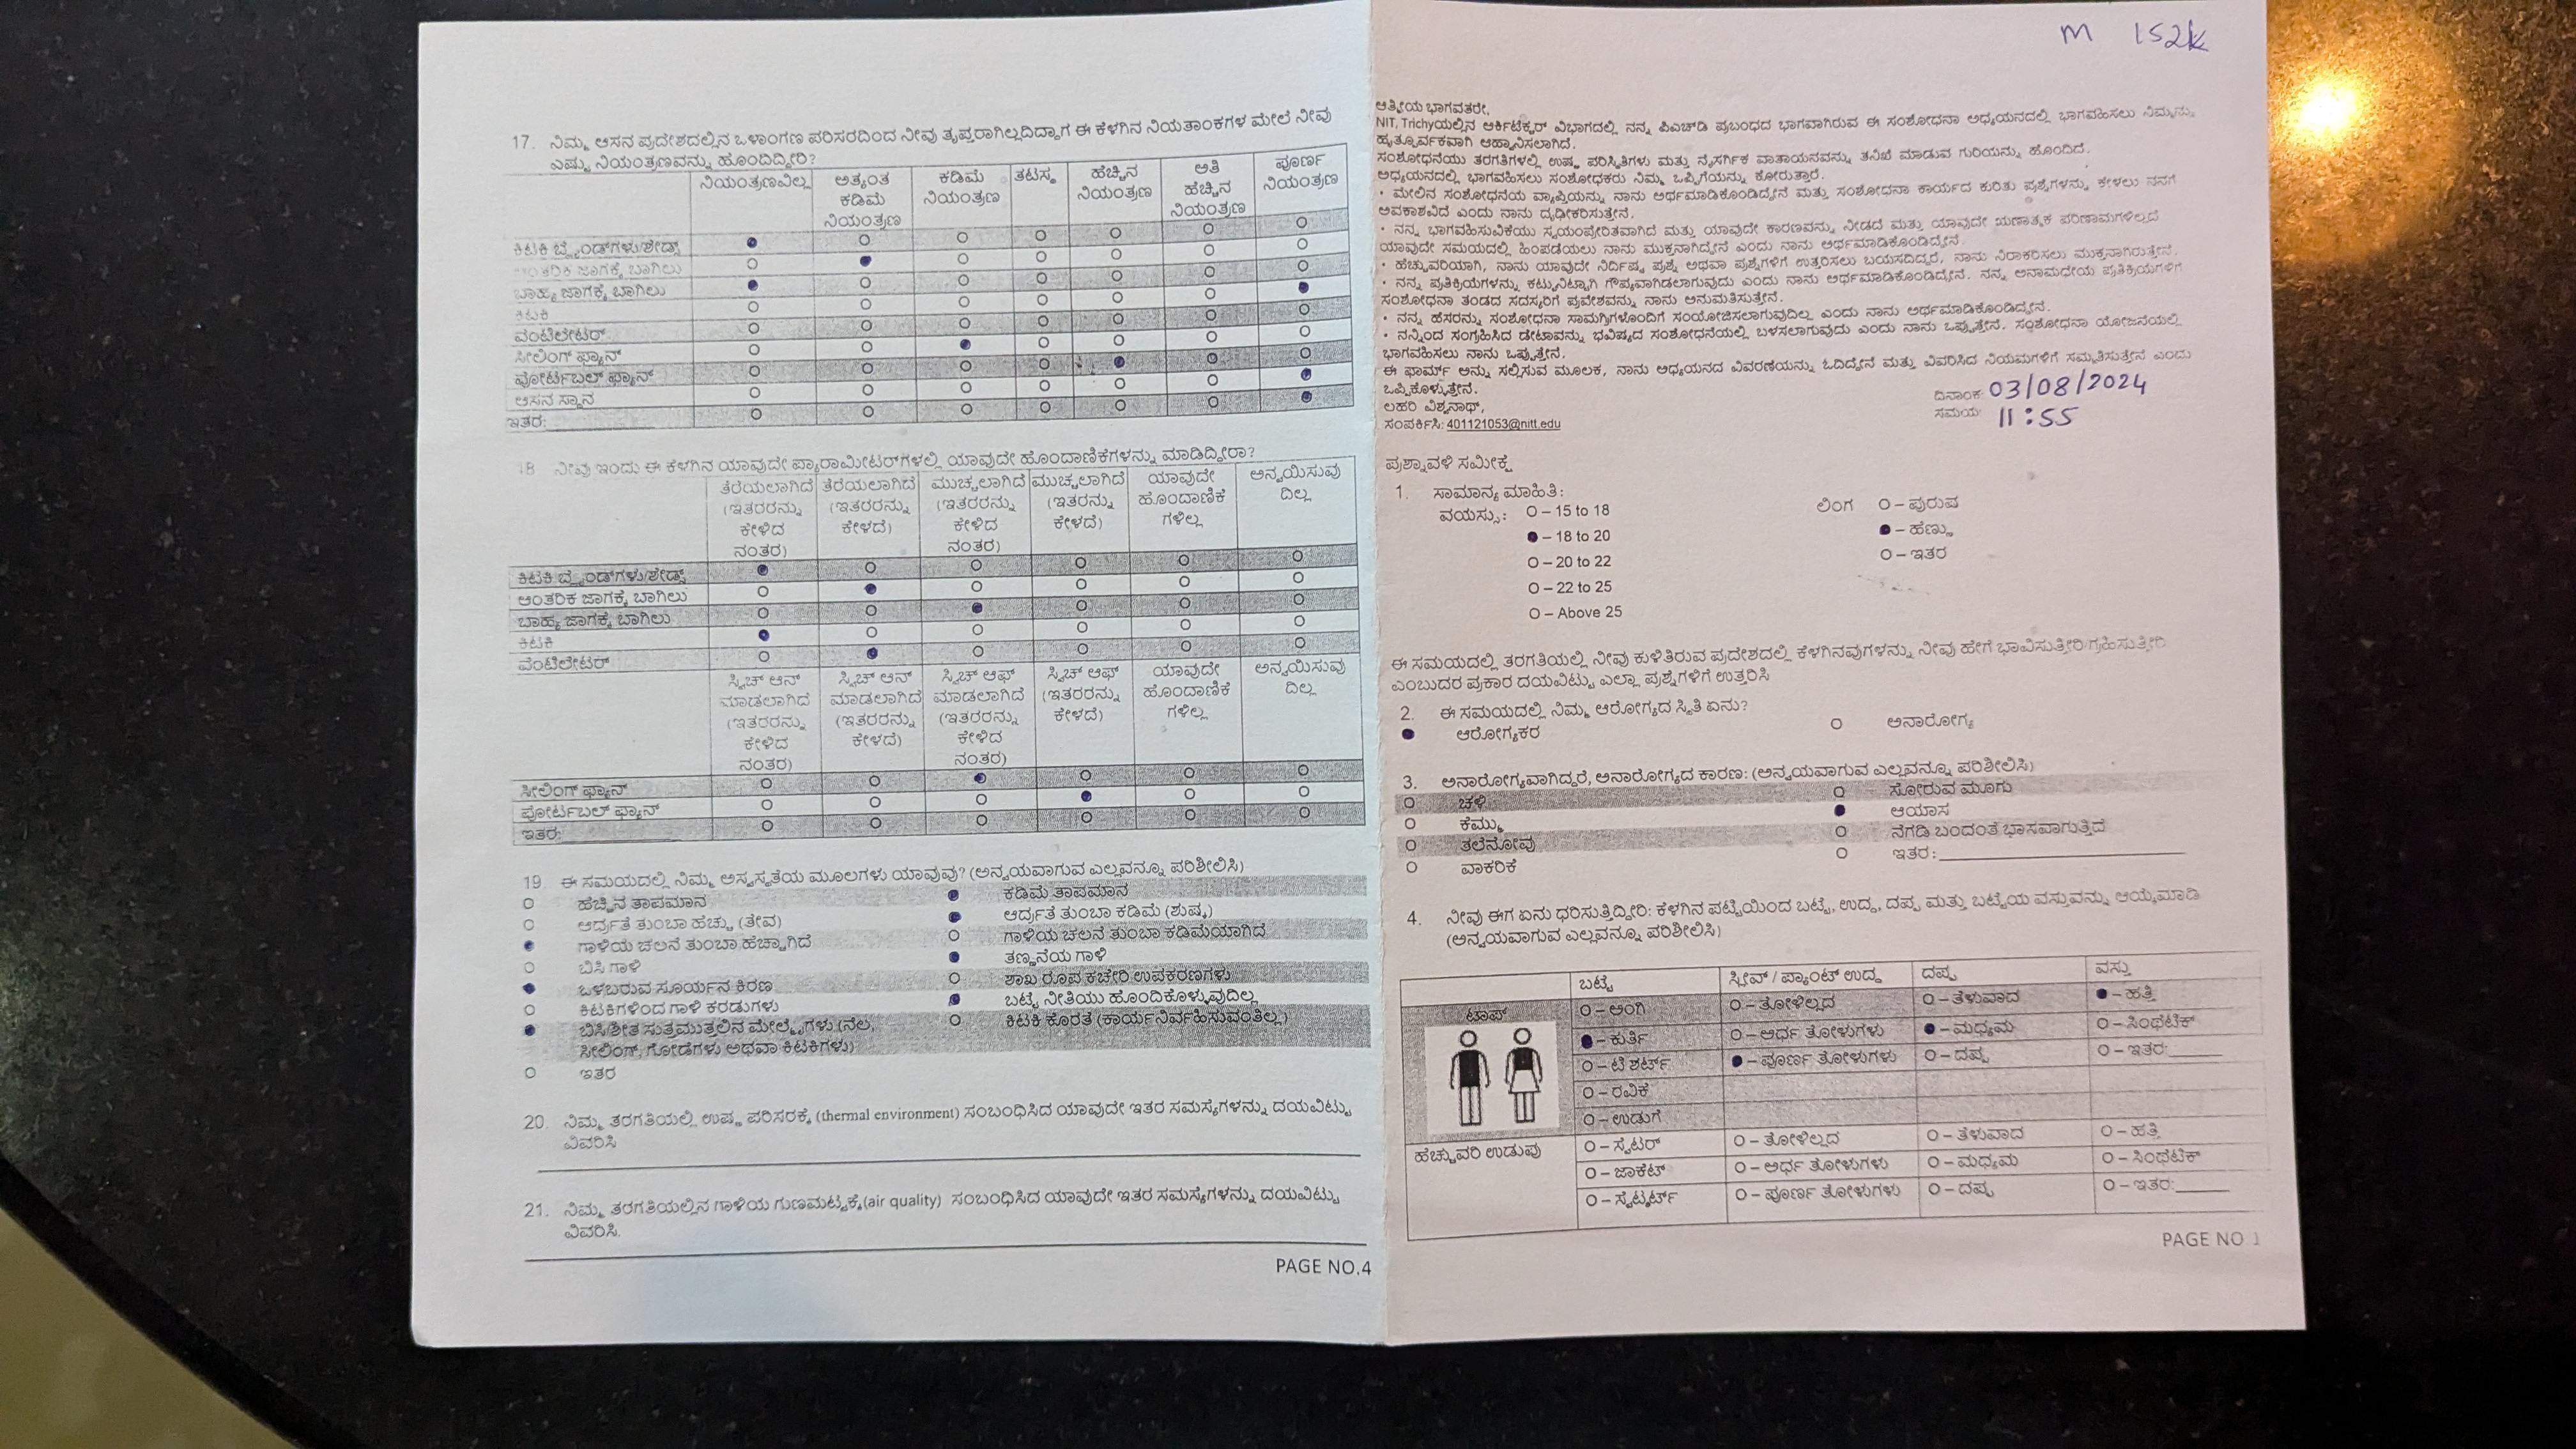 17. ನಿಮ್ಮ ಆಸನ ಪ್ರದೇಶದಲ್ಲಿನ ಒಳಾಂಗಣ ಪರಿಸರದಿಂದ ನೀವು ತೃಪ್ತರಾಗಿಲ್ಲದಿದ್ದಾಗ ಈ ಕೆಳಗಿನ ನಿಯತಾಂಕಗಳ ಮೇಲೆ ನೀವು
ಎಷ್ಟು ನಿಯಂತ್ರಣವನ್ನು ಹೊಂದಿದ್ದೀರಿ?
ನಿಯಂತ್ರಣವಿಲ್ಲ ಅತ್ಯಂತ ಕಡಿಮೆ ನಿಯಂತ್ರಣ ಕಡಿಮೆ ನಿಯಂತ್ರಣ ತಟಸ್ಥ ಹೆಚ್ಚಿನ ನಿಯಂತ್ರಣ ಅತಿ ಹೆಚ್ಚಿನ ನಿಯಂತ್ರಣ ಪೂರ್ಣ ನಿಯಂತ್ರಣ
ಕಿಟಕಿ ಬ್ಲೈಂಡ್‌ಗಳು/ಶೇಡ್ಸ್
ಜಾಗಕ್ಕೆ ಬಾಗಿಲು
ಬಾಹ್ಯ ಜಾಗಕ್ಕೆ ಬಾಗಿಲು
ಕಿಟಕಿ
ವೆಂಟಿಲೇಟರ್
ಸೀಲಿಂಗ್ ಫ್ಯಾನ್
ಪೋರ್ಟಬಲ್ ಫ್ಯಾನ್
ಆಸನ ಸ್ಥಾನ
ಇತರ:
18 ನೀವು ಇಂದು ಈ ಕೆಳಗಿನ ಯಾವುದೇ ಪ್ಯಾರಾಮೀಟರ್‌ಗಳಲ್ಲಿ ಯಾವುದೇ ಹೊಂದಾಣಿಕೆಗಳನ್ನು ಮಾಡಿದ್ದೀರಾ?
ತೆರೆಯಲಾಗಿದೆ (ಇತರರನ್ನು ಕೇಳಿದ ನಂತರ) ತೆರೆಯಲಾಗಿದೆ (ಇತರರನ್ನು ಕೇಳದೆ) ಮುಚ್ಚಲಾಗಿದೆ (ಇತರರನ್ನು ಕೇಳಿದ ನಂತರ) ಮುಚ್ಚಲಾಗಿದೆ (ಇತರರನ್ನು ಕೇಳದೆ) ಯಾವುದೇ ಹೊಂದಾಣಿಕೆ ಗಳಿಲ್ಲ ಅನ್ವಯಿಸುವು ದಿಲ್ಲ
ಕಿಟಕಿ ಬ್ಲೈಂಡ್‌ಗಳು/ಶೇಡ್ಸ್
ಆಂತರಿಕ ಜಾಗಕ್ಕೆ ಬಾಗಿಲು
ಬಾಹ್ಯ ಜಾಗಕ್ಕೆ ಬಾಗಿಲು
ಕಿಟಕಿ
ವೆಂಟಿಲೇಟರ್
ಸ್ವಿಚ್ ಆನ್ ಮಾಡಲಾಗಿದೆ (ಇತರರನ್ನು ಕೇಳಿದ ನಂತರ) ಸ್ವಿಚ್ ಆನ್ ಮಾಡಲಾಗಿದೆ (ಇತರರನ್ನು ಕೇಳದೆ) ಸ್ವಿಚ್ ಆಫ್ ಮಾಡಲಾಗಿದೆ (ಇತರರನ್ನು ಕೇಳಿದ ನಂತರ) ಸ್ವಿಚ್ ಆಫ್ (ಇತರರನ್ನು ಕೇಳದೆ) ಯಾವುದೇ ಹೊಂದಾಣಿಕೆ ಗಳಿಲ್ಲ ಅನ್ವಯಿಸುವು ದಿಲ್ಲ
ಸೀಲಿಂಗ್ ಫ್ಯಾನ್
ಪೋರ್ಟಬಲ್ ಫ್ಯಾನ್
ಇತರ:
19. ಈ ಸಮಯದಲ್ಲಿ ನಿಮ್ಮ ಅಸ್ವಸ್ಥತೆಯ ಮೂಲಗಳು ಯಾವುವು? (ಅನ್ವಯವಾಗುವ ಎಲ್ಲವನ್ನೂ ಪರಿಶೀಲಿಸಿ)
ಹೆಚ್ಚಿನ ತಾಪಮಾನ ಕಡಿಮೆ ತಾಪಮಾನ
ಆರ್ದ್ರತೆ ತುಂಬಾ ಹೆಚ್ಚು (ತೇವ) ಆರ್ದ್ರತೆ ತುಂಬಾ ಕಡಿಮೆ (ಶುಷ್ಕ)
ಗಾಳಿಯ ಚಲನೆ ತುಂಬಾ ಹೆಚ್ಚಾಗಿದೆ ಗಾಳಿಯ ಚಲನೆ ತುಂಬಾ ಕಡಿಮೆಯಾಗಿದೆ
ಬಿಸಿ ಗಾಳಿ ತಣ್ಣನೆಯ ಗಾಳಿ
ಒಳಬರುವ ಸೂರ್ಯನ ಕಿರಣ ಶಾಖ ರೂಪ ಕಚೇರಿ ಉಪಕರಣಗಳು
ಕಿಟಕಿಗಳಿಂದ ಗಾಳಿ ಕರಡುಗಳು ಬಟ್ಟೆ ನೀತಿಯು ಹೊಂದಿಕೊಳ್ಳುವುದಿಲ್ಲ
ಬಿಸಿ/ಶೀತ ಸುತ್ತಮುತ್ತಲಿನ ಮೇಲ್ಮೈಗಳು (ನೆಲ, ಕಿಟಕಿ ಕೊರತೆ (ಕಾರ್ಯನಿರ್ವಹಿಸುವಂತಿಲ್ಲ)
ಸೀಲಿಂಗ್, ಗೋಡೆಗಳು ಅಥವಾ ಕಿಟಕಿಗಳು)
ಇತರ
20. ನಿಮ್ಮ ತರಗತಿಯಲ್ಲಿ ಉಷ್ಣ ಪರಿಸರಕ್ಕೆ (thermal environment) ಸಂಬಂಧಿಸಿದ ಯಾವುದೇ ಇತರ ಸಮಸ್ಯೆಗಳನ್ನು ದಯವಿಟ್ಟು
ವಿವರಿಸಿ
21. ನಿಮ್ಮ ತರಗತಿಯಲ್ಲಿನ ಗಾಳಿಯ ಗುಣಮಟ್ಟಕ್ಕೆ(air quality) ಸಂಬಂಧಿಸಿದ ಯಾವುದೇ ಇತರ ಸಮಸ್ಯೆಗಳನ್ನು ದಯವಿಟ್ಟು
ವಿವರಿಸಿ.
PAGE NO.4
M 152k
ಆತ್ಮೀಯ ಭಾಗವತರೇ,
NIT, Trichyಯಲ್ಲಿನ ಆರ್ಕಿಟೆಕ್ಚರ್ ವಿಭಾಗದಲ್ಲಿ ನನ್ನ ಪಿಎಚ್‌ಡಿ ಪ್ರಬಂಧದ ಭಾಗವಾಗಿರುವ ಈ ಸಂಶೋಧನಾ ಅಧ್ಯಯನದಲ್ಲಿ ಭಾಗವಹಿಸಲು ನಿಮ್ಮನ್ನು
ಹೃತ್ಪೂರ್ವಕವಾಗಿ ಆಹ್ವಾನಿಸಲಾಗಿದೆ.
ಸಂಶೋಧನೆಯು ತರಗತಿಗಳಲ್ಲಿ ಉಷ್ಣ ಪರಿಸ್ಥಿತಿಗಳು ಮತ್ತು ನೈಸರ್ಗಿಕ ವಾತಾಯನವನ್ನು ತನಿಖೆ ಮಾಡುವ ಗುರಿಯನ್ನು ಹೊಂದಿದೆ.
ಅಧ್ಯಯನದಲ್ಲಿ ಭಾಗವಹಿಸಲು ಸಂಶೋಧಕರು ನಿಮ್ಮ ಒಪ್ಪಿಗೆಯನ್ನು ಕೋರುತ್ತಾರೆ.
• ಮೇಲಿನ ಸಂಶೋಧನೆಯ ವ್ಯಾಪ್ತಿಯನ್ನು ನಾನು ಅರ್ಥಮಾಡಿಕೊಂಡಿದ್ದೇನೆ ಮತ್ತು ಸಂಶೋಧನಾ ಕಾರ್ಯದ ಕುರಿತು ಪ್ರಶ್ನೆಗಳನ್ನು ಕೇಳಲು ನನಗೆ
ಅವಕಾಶವಿದೆ ಎಂದು ನಾನು ದೃಢೀಕರಿಸುತ್ತೇನೆ.
• ನನ್ನ ಭಾಗವಹಿಸುವಿಕೆಯು ಸ್ವಯಂಪ್ರೇರಿತವಾಗಿದೆ ಮತ್ತು ಯಾವುದೇ ಕಾರಣವನ್ನು ನೀಡದೆ ಮತ್ತು ಯಾವುದೇ ಋಣಾತ್ಮಕ ಪರಿಣಾಮಗಳಿಲ್ಲದೆ
ಯಾವುದೇ ಸಮಯದಲ್ಲಿ ಹಿಂಪಡೆಯಲು ನಾನು ಮುಕ್ತನಾಗಿದ್ದೇನೆ ಎಂದು ನಾನು ಅರ್ಥಮಾಡಿಕೊಂಡಿದ್ದೇನೆ.
• ಹೆಚ್ಚುವರಿಯಾಗಿ, ನಾನು ಯಾವುದೇ ನಿರ್ದಿಷ್ಟ ಪ್ರಶ್ನೆ ಅಥವಾ ಪ್ರಶ್ನೆಗಳಿಗೆ ಉತ್ತರಿಸಲು ಬಯಸದಿದ್ದರೆ, ನಾನು ನಿರಾಕರಿಸಲು ಮುಕ್ತನಾಗಿರುತ್ತೇನೆ.
• ನನ್ನ ಪ್ರತಿಕ್ರಿಯೆಗಳನ್ನು ಕಟ್ಟುನಿಟ್ಟಾಗಿ ಗೌಪ್ಯವಾಗಿಡಲಾಗುವುದು ಎಂದು ನಾನು ಅರ್ಥಮಾಡಿಕೊಂಡಿದ್ದೇನೆ. ನನ್ನ ಅನಾಮಧೇಯ ಪ್ರತಿಕ್ರಿಯೆಗಳಿಗೆ
ಸಂಶೋಧನಾ ತಂಡದ ಸದಸ್ಯರಿಗೆ ಪ್ರವೇಶವನ್ನು ನಾನು ಅನುಮತಿಸುತ್ತೇನೆ.
• ನನ್ನ ಹೆಸರನ್ನು ಸಂಶೋಧನಾ ಸಾಮಗ್ರಿಗಳೊಂದಿಗೆ ಸಂಯೋಜಿಸಲಾಗುವುದಿಲ್ಲ ಎಂದು ನಾನು ಅರ್ಥಮಾಡಿಕೊಂಡಿದ್ದೇನೆ.
• ನನ್ನಿಂದ ಸಂಗ್ರಹಿಸಿದ ಡೇಟಾವನ್ನು ಭವಿಷ್ಯದ ಸಂಶೋಧನೆಯಲ್ಲಿ ಬಳಸಲಾಗುವುದು ಎಂದು ನಾನು ಒಪ್ಪುತ್ತೇನೆ. ಸಂಶೋಧನಾ ಯೋಜನೆಯಲ್ಲಿ
ಭಾಗವಹಿಸಲು ನಾನು ಒಪ್ಪುತ್ತೇನೆ.
ಈ ಫಾರ್ಮ್ ಅನ್ನು ಸಲ್ಲಿಸುವ ಮೂಲಕ, ನಾನು ಅಧ್ಯಯನದ ವಿವರಣೆಯನ್ನು ಓದಿದ್ದೇನೆ ಮತ್ತು ವಿವರಿಸಿದ ನಿಯಮಗಳಿಗೆ ಸಮ್ಮತಿಸುತ್ತೇನೆ ಎಂದು
ಒಪ್ಪಿಕೊಳ್ಳುತ್ತೇನೆ.
ಲಹರಿ ವಿಶ್ವನಾಥ್,
ಸಂಪರ್ಕಿಸಿ: 401121053@nitt.edu
ದಿನಾಂಕ: 03/08/2024
ಸಮಯ: 11:55
ಪ್ರಶ್ನಾವಳಿ ಸಮೀಕ್ಷೆ
1. ಸಾಮಾನ್ಯ ಮಾಹಿತಿ:
ವಯಸ್ಸು: O – 15 to 18 ಲಿಂಗ O – ಪುರುಷ
– 18 to 20 – ಹೆಣ್ಣು
O – 20 to 22 O – ಇತರ
O – 22 to 25
O – Above 25
ಈ ಸಮಯದಲ್ಲಿ ತರಗತಿಯಲ್ಲಿ ನೀವು ಕುಳಿತಿರುವ ಪ್ರದೇಶದಲ್ಲಿ ಕೆಳಗಿನವುಗಳನ್ನು ನೀವು ಹೇಗೆ ಭಾವಿಸುತ್ತೀರಿ/ಗ್ರಹಿಸುತ್ತೀರಿ
ಎಂಬುದರ ಪ್ರಕಾರ ದಯವಿಟ್ಟು ಎಲ್ಲಾ ಪ್ರಶ್ನೆಗಳಿಗೆ ಉತ್ತರಿಸಿ
2. ಈ ಸಮಯದಲ್ಲಿ ನಿಮ್ಮ ಆರೋಗ್ಯದ ಸ್ಥಿತಿ ಏನು?
ಆರೋಗ್ಯಕರ O ಅನಾರೋಗ್ಯ
3. ಅನಾರೋಗ್ಯವಾಗಿದ್ದರೆ, ಅನಾರೋಗ್ಯದ ಕಾರಣ: (ಅನ್ವಯವಾಗುವ ಎಲ್ಲವನ್ನೂ ಪರಿಶೀಲಿಸಿ)
ಚಳಿ ಸೋರುವ ಮೂಗು
ಕೆಮ್ಮು ಆಯಾಸ
ತಲೆನೋವು ನೆಗಡಿ ಬಂದಂತೆ ಭಾಸವಾಗುತ್ತಿದೆ
ವಾಕರಿಕೆ ಇತರ:
4. ನೀವು ಈಗ ಏನು ಧರಿಸುತ್ತಿದ್ದೀರಿ: ಕೆಳಗಿನ ಪಟ್ಟಿಯಿಂದ ಬಟ್ಟೆ, ಉದ್ದ, ದಪ್ಪ ಮತ್ತು ಬಟ್ಟೆಯ ವಸ್ತುವನ್ನು ಆಯ್ಕೆಮಾಡಿ
(ಅನ್ವಯವಾಗುವ ಎಲ್ಲವನ್ನೂ ಪರಿಶೀಲಿಸಿ)
ಬಟ್ಟೆ ಸ್ಲೀವ್ / ಪ್ಯಾಂಟ್ ಉದ್ದ ದಪ್ಪ ವಸ್ತು
ಟಾಪ್ O – ಅಂಗಿ O – ತೋಳಿಲ್ಲದ O – ತೆಳುವಾದ – ಹತ್ತಿ
– ಕುರ್ತಿ O – ಅರ್ಧ ತೋಳುಗಳು – ಮಧ್ಯಮ O – ಸಿಂಥೆಟಿಕ್
O – ಟಿ ಶರ್ಟ್ – ಪೂರ್ಣ ತೋಳುಗಳು O – ದಪ್ಪ O – ಇತರ:
O – ರವಿಕೆ
O – ಉಡುಗೆ
ಹೆಚ್ಚುವರಿ ಉಡುಪು O – ಸ್ವೆಟರ್ O – ತೋಳಿಲ್ಲದ O – ತೆಳುವಾದ O – ಹತ್ತಿ
O – ಜಾಕೆಟ್ O – ಅರ್ಧ ತೋಳುಗಳು O – ಮಧ್ಯಮ O – ಸಿಂಥೆಟಿಕ್
O – ಸ್ವೆಟ್ಶರ್ಟ್ O – ಪೂರ್ಣ ತೋಳುಗಳು O – ದಪ್ಪ O – ಇತರ:
PAGE NO.1